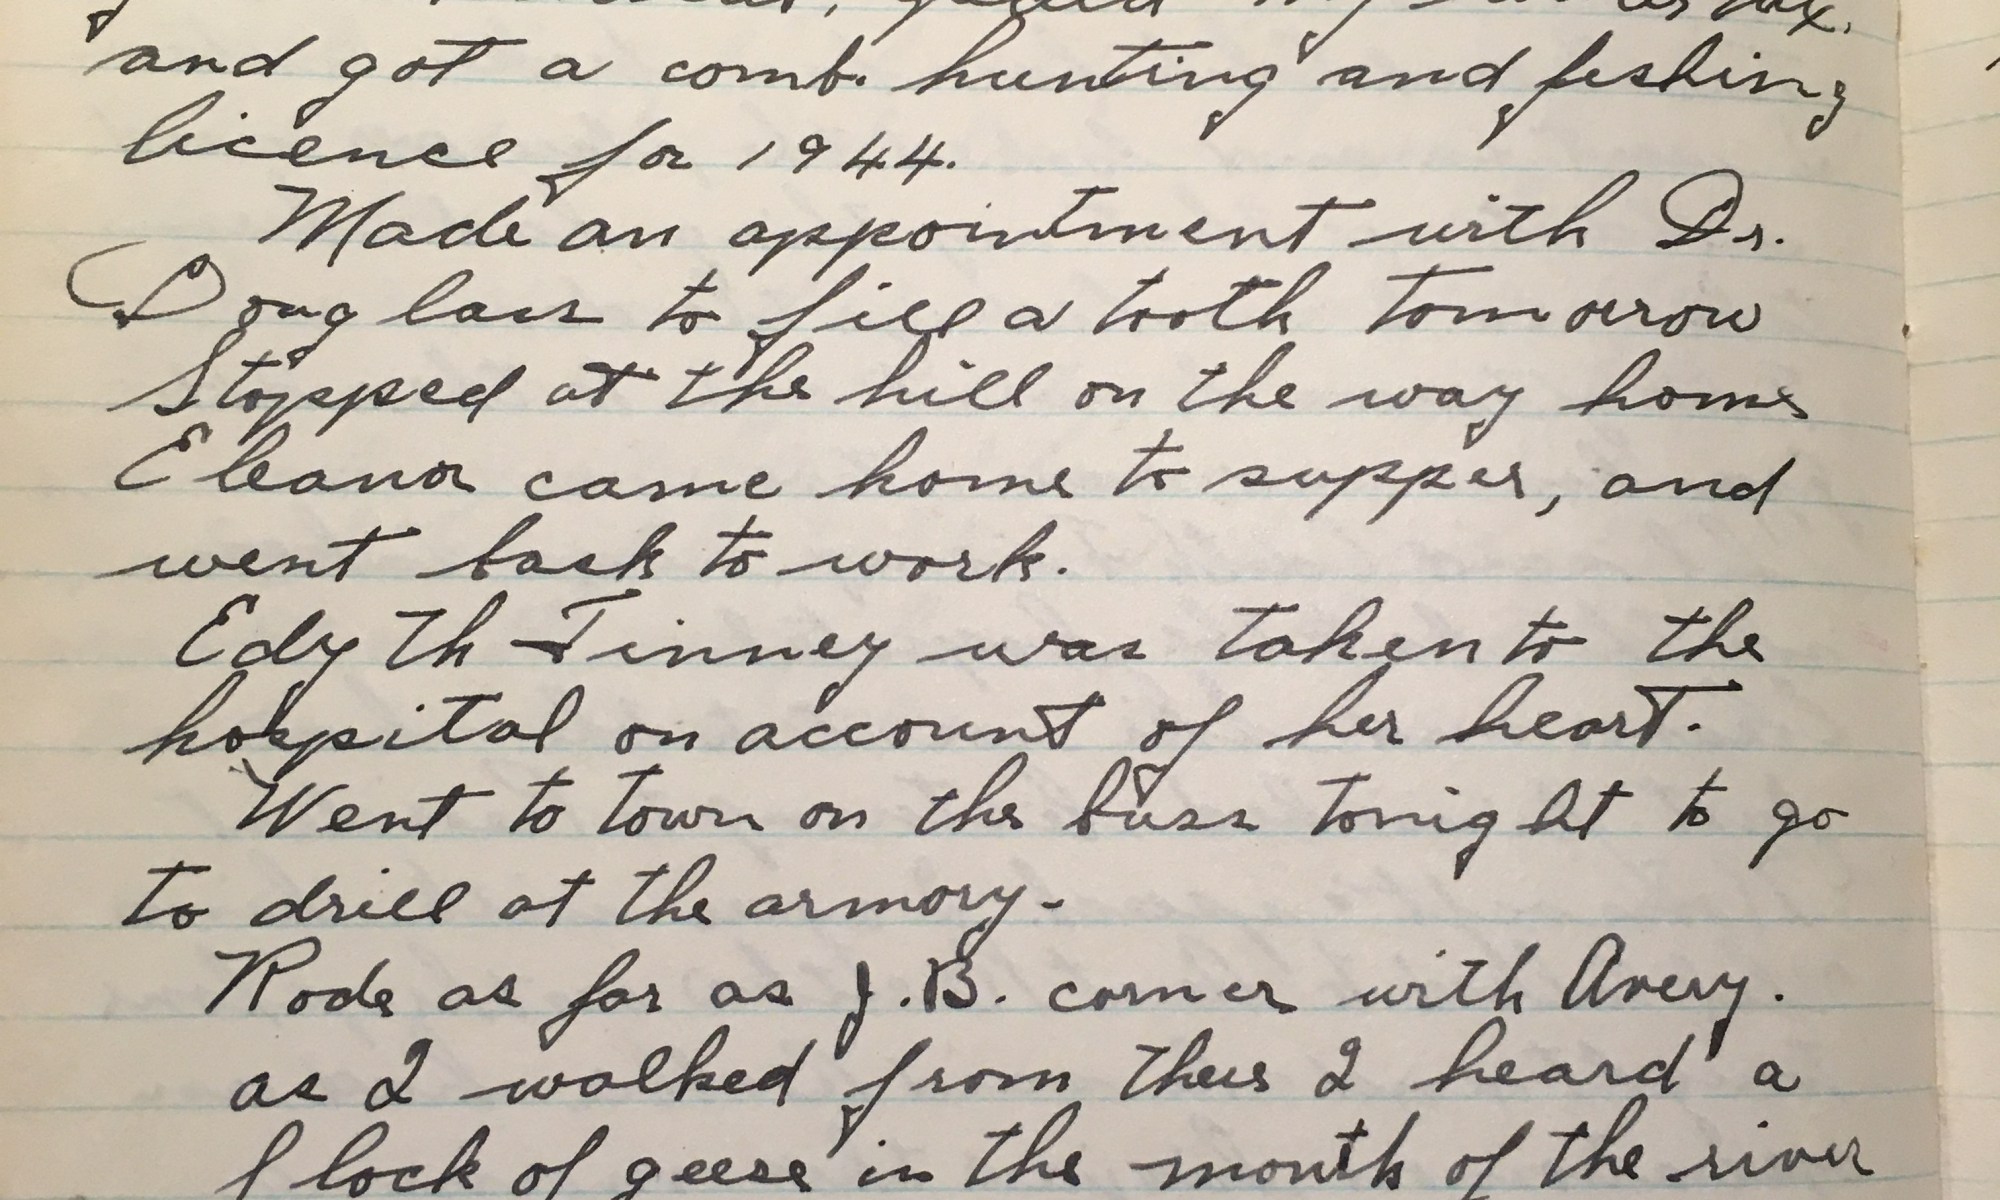 and got a comb. hunting and fishing
licence for 1944.
Made an appointment with Dr.
Douglass to fill a tooth tomorrow
Stopped at the hill on the way home
Eleanor came home to supper, and
went back to work.
Edyth Tinney was taken to the
hospital on account of her heart.
Went to town on the buss tonight to go
to drill at the armory.
Rode as far as J.B. corner with Avery.
as I walked from there I heard a
flock of geese in the mouth of the river